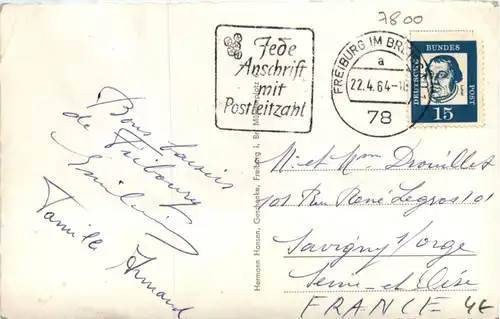 7800
Jede
Anschrift
mit
Postleitzahl
FREIBURG IM BREISGAU
a
22.4.64-18
78
DEUTSCHE BUNDESPOST
15
Bons baisers
de Fribourg
Famille Armand
Hermann Hansen, Freiburg i. Br.
M. et Mme Drouillet
101 Rue René Legros 101
Savigny s/orge
Seine-et-Oise
FRANCE